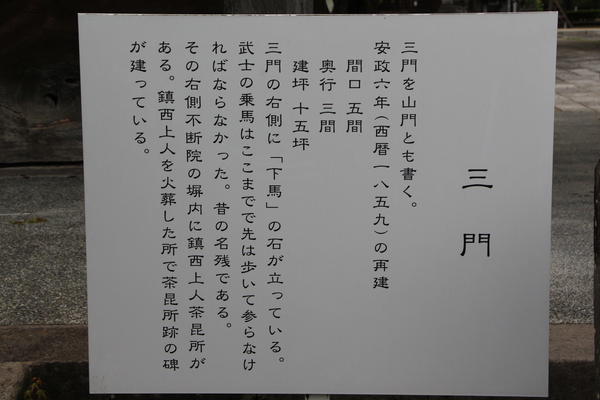 三門
三門を山門とも書く。
安政六年（西暦一八五九）の再建
間口 五間
奥行 三間
建坪 十五坪
三門の右側に「下馬」の石が立っている。
武士の乗馬はここまでで先は歩いて参らなけ
ればならなかった。昔の名残である。
その右側不断院の塀内に鎮西上人茶毘所が
ある。鎮西上人を火葬した所で茶昆所跡の碑
が建っている。